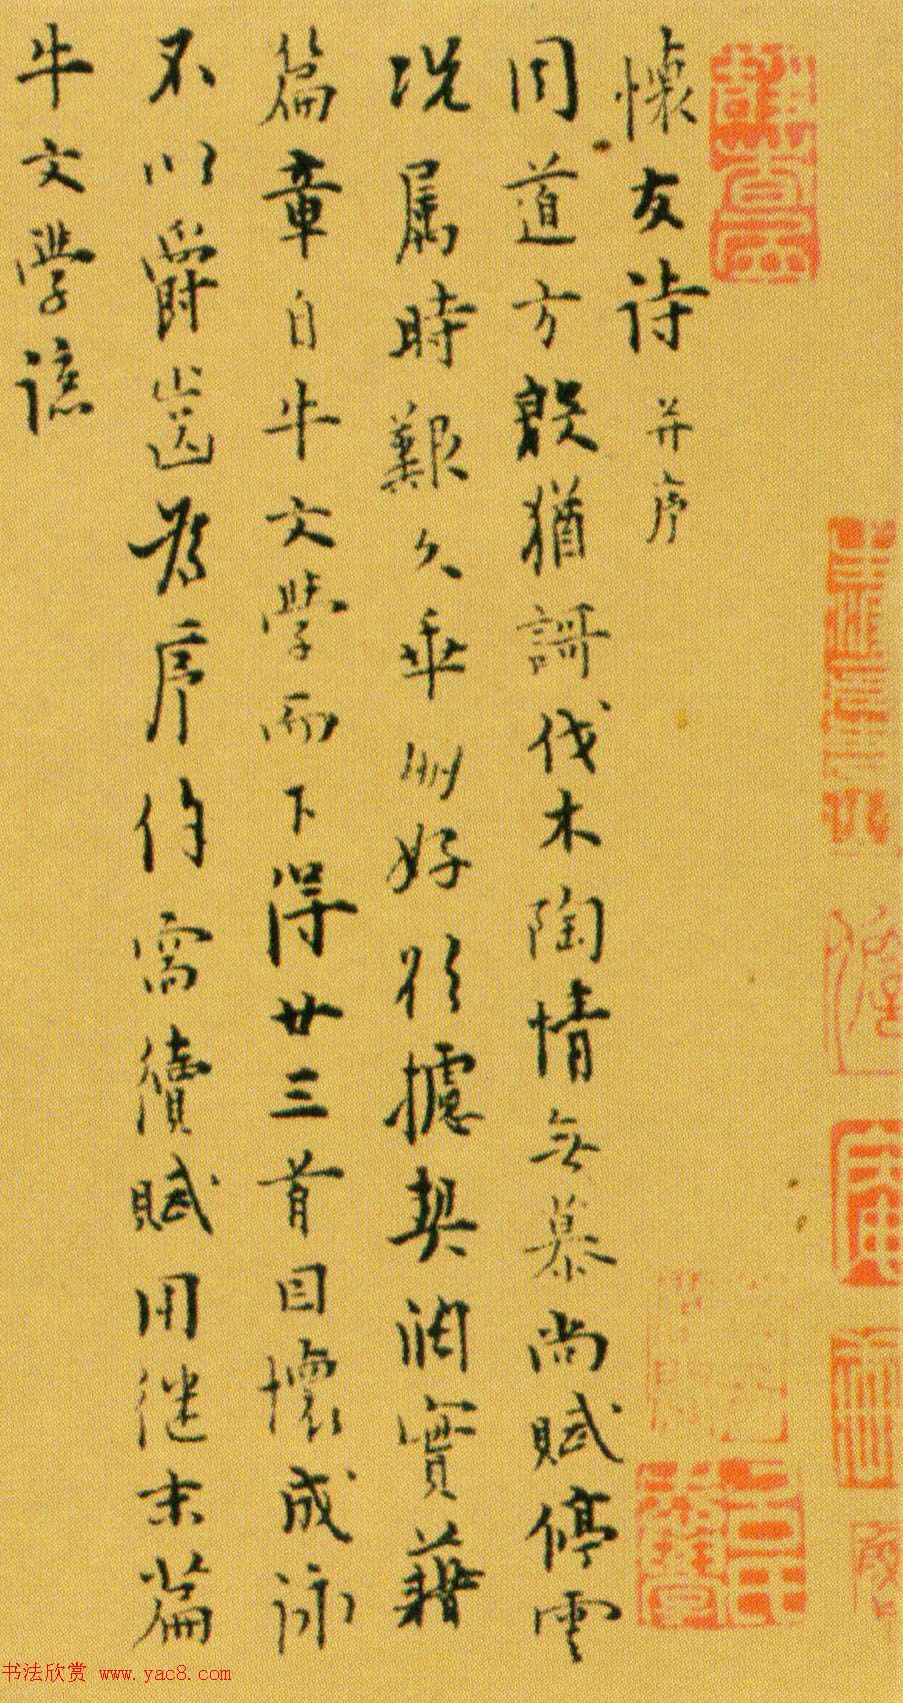 懷友詩 并序
周道方殷猶謌伐木陶情無慕尚賦停雲
況属時艱久乖州好欲攄契闊實藉
篇章自牛文學而下得廿三首因懷成詠
不以爵齒為序需續賦用継末篇
牛文學諒
书法欣赏 www.yac8.com